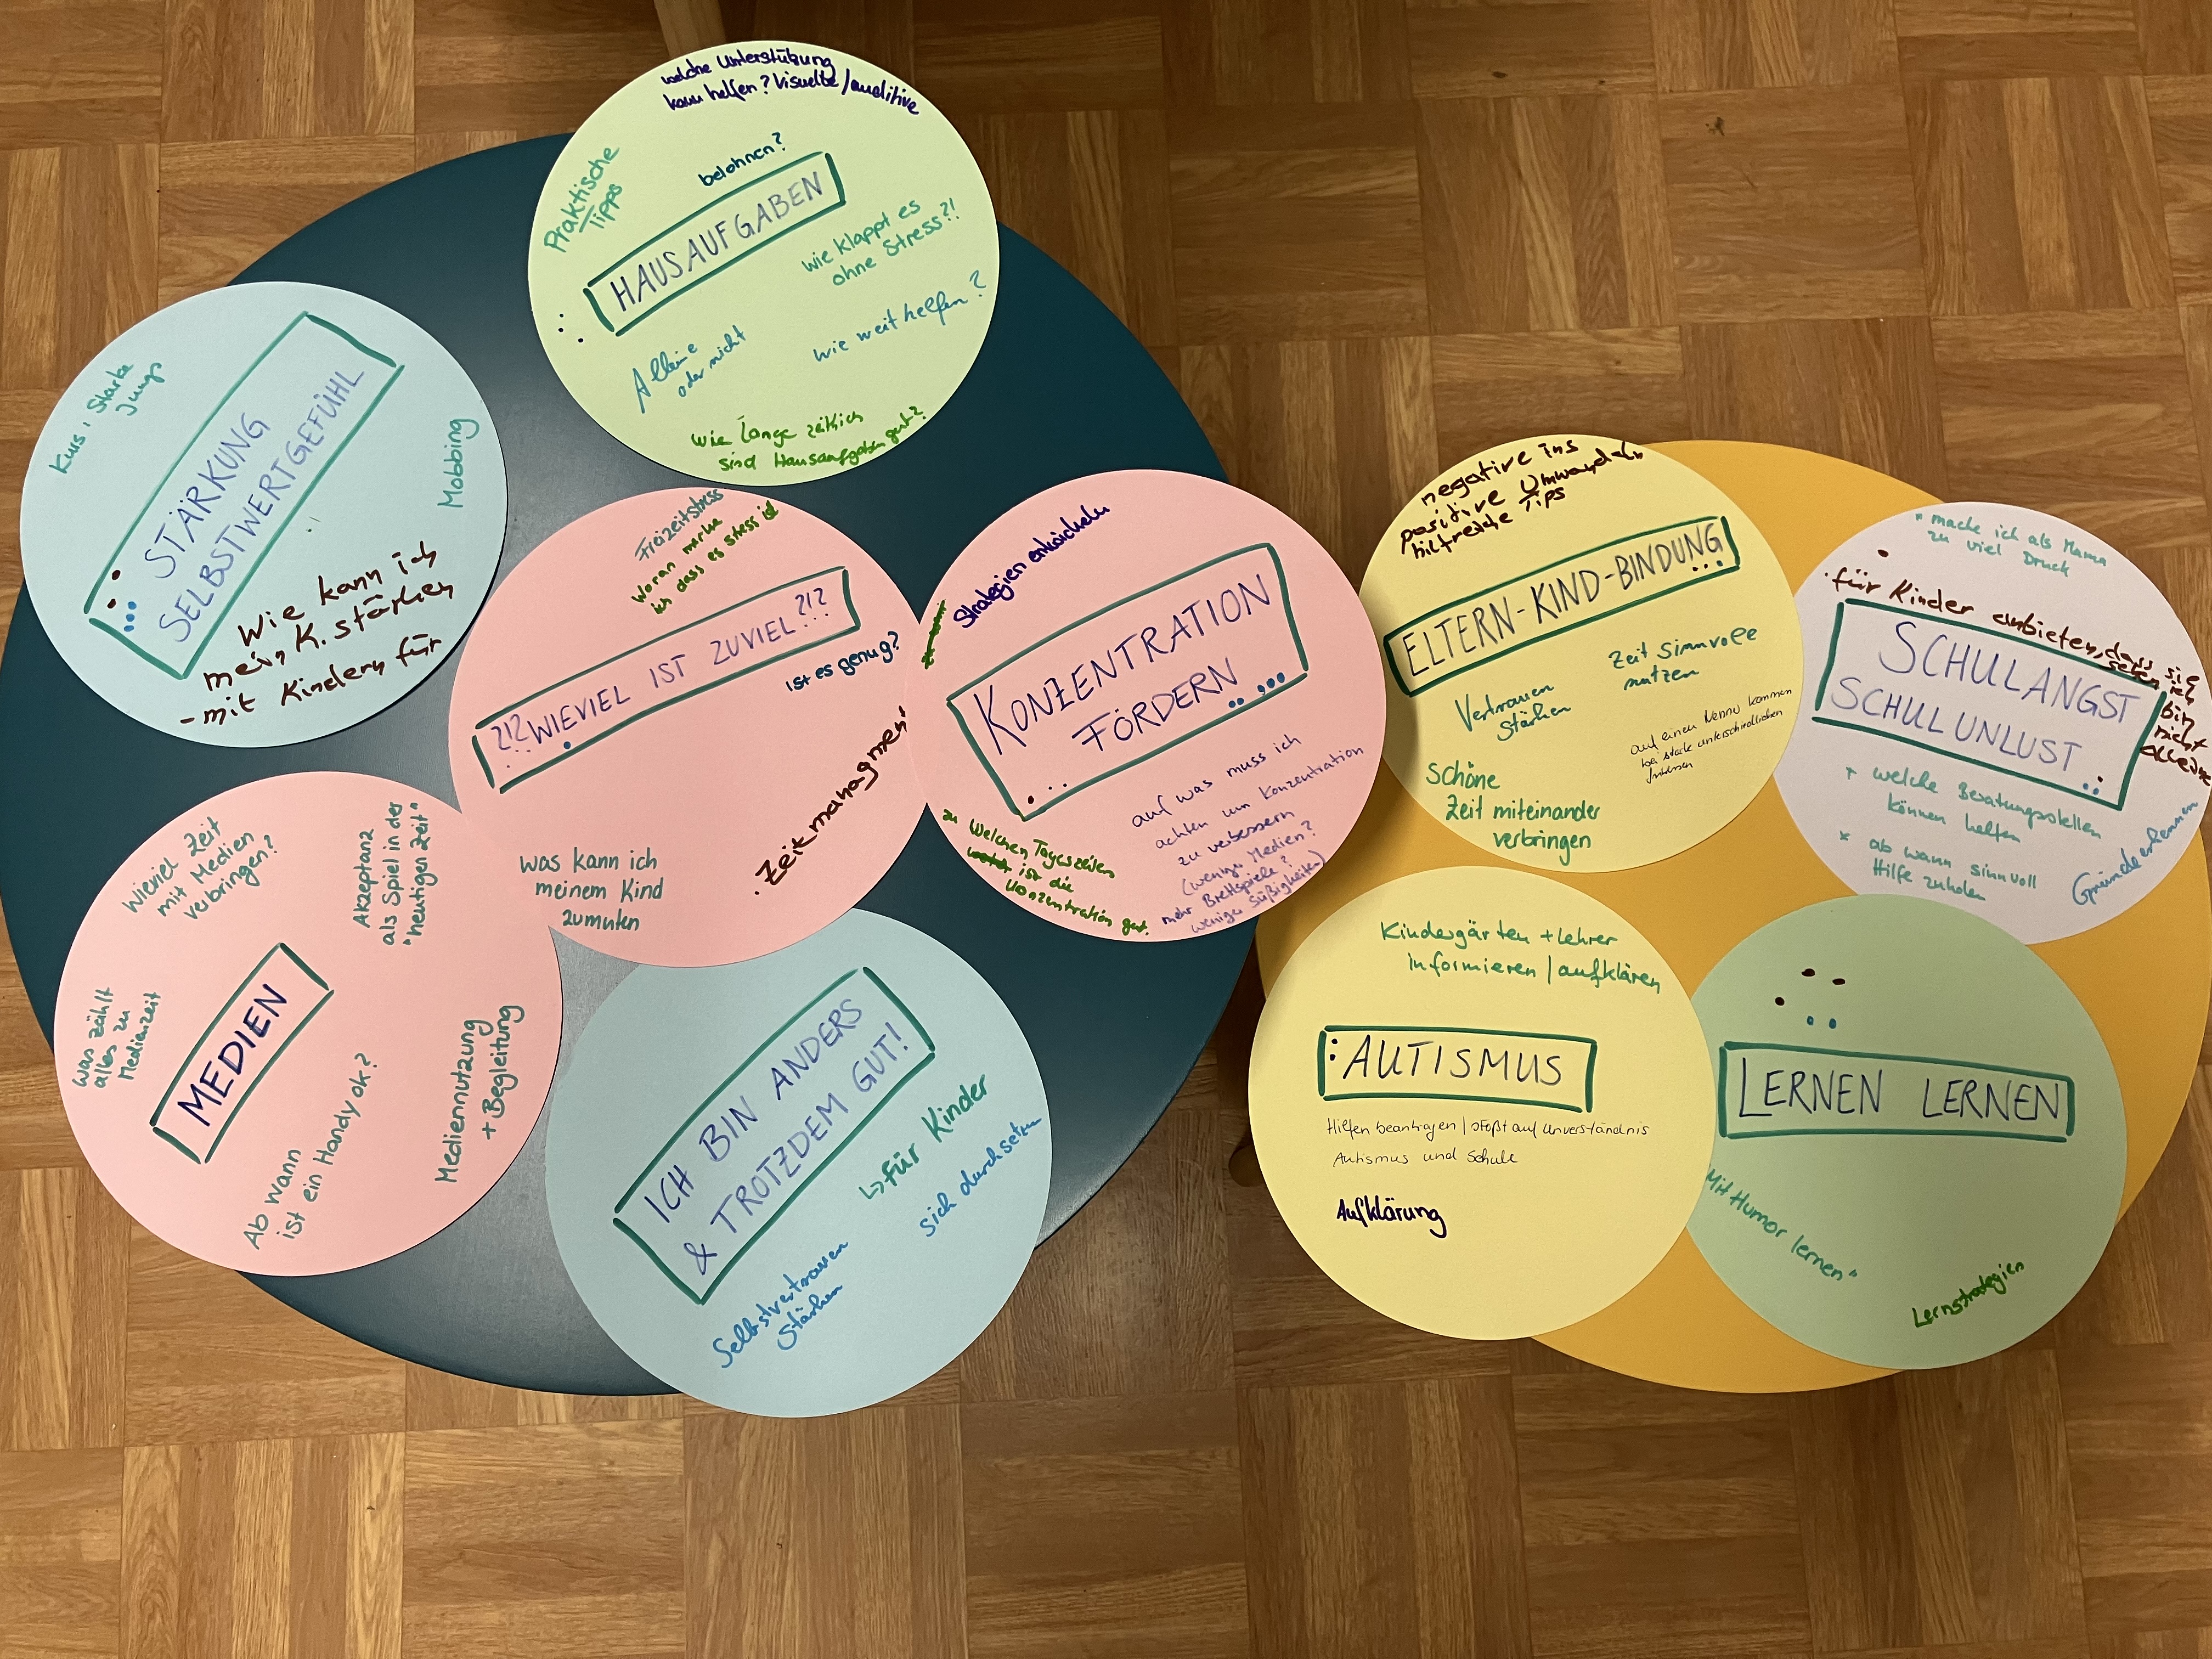 welche Unterstützung
kann helfen? Visuelle/auditive
belohnen?
Praktische
Tipps
HAUSAUFGABEN
wie klappt es
ohne Stress?!
wie weit helfen?
Alleine
oder nicht
wie lange zeitlich
sind Hausaufgaben gut?
Kurs: Starke
Jungs
STÄRKUNG
SELBSTWERTGEFÜHL
Mobbing
Wie kann ich
mein K. stärken
- mit Kindern für
Freizeitstress
Woran merke
ich dass es stress ist
?!?WIEVIEL IST ZUVIEL?!?
ist es genug?
Zeitmanagment
was kann ich
meinem Kind
zumuten
Strategien entwickeln
KONZENTRATION
FÖRDERN
auf was muss ich
achten um Konzentration
zu verbessern
(weniger Medien?
mehr Brettspiele?
weniger Süßigkeiten)
zu Welchen Tageszeiten
ist die
Konzentration gut.
Wieviel Zeit
mit Medien
verbringen?
Akzeptanz
als Spiel in der
"heutigen Zeit"
was zählt
alles zu
Medienzeit
MEDIEN
Ab wann
ist ein Handy ok?
Mediennutzung
+ Begleitung
ICH BIN ANDERS
& TROTZDEM GUT!
↳ für Kinder
sich durchsetzen
Selbstvertrauen
stärken
negative ins
positive Umwandeln
hilfreiche Tips
ELTERN-KIND-BINDUNG
Zeit sinnvolle
nutzen
Vertrauen
stärken
auf einen Nenner kommen
bei stark unterschiedlichen
Interessen
Schöne
Zeit miteinander
verbringen
* mache ich als Mama
zu viel Druck
für Kinder anbieten, dass sie
sehen ich
bin
nicht
alleine
SCHULANGST
SCHULUNLUST
* welche Beratungsstellen
können helfen
* ab wann sinnvoll
Hilfe zuholen
Gründe erkennen
Kindergärten + Lehrer
informieren / aufklären
AUTISMUS
Hilfen beantragen / stoßt auf Unverständnis
Autismus und Schule
Aufklärung
LERNEN LERNEN
Mit Humor lernen"
Lernstrategien